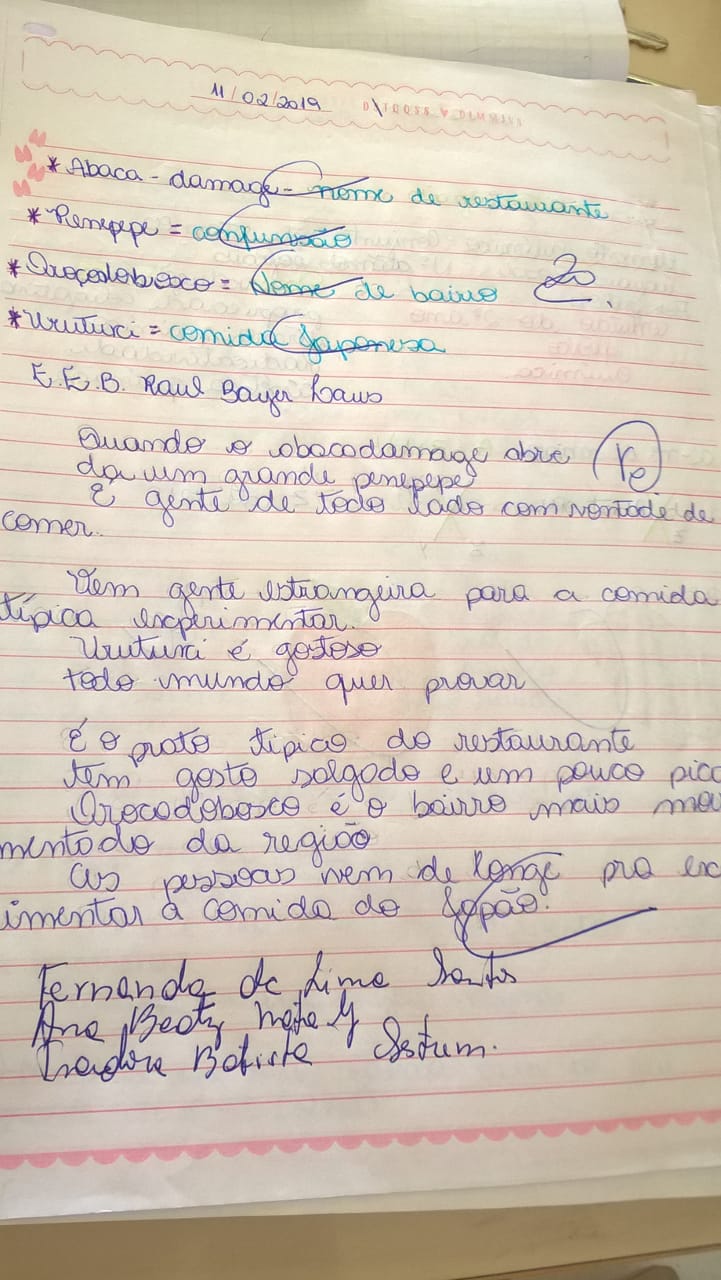 11/02/2019
* Abaca-damage - nome de restaurante
* Penepepe = confumsão
* Oroçodobosco = Nome de bairro
* Urutuci = comida Japonesa
20
E.E.B. Raul Bayer Laus
Quando o abacadamage abre
da um grande penepepe
E gente de todo lado com vontade de
comer.
Vem gente estrangeira para a comida
típica experimentar.
Urutuci é gostoso
todo mundo quer provar
É o prato típico do restaurante
tem gosto salgado e um pouco pica
Oroçodobosco é o bairro mais mov
mentado da região
As pessoas vem de longe pra ex
imentar a comida do Japão.
Fernanda de Lima Santos
Ana Beatriz
Batista